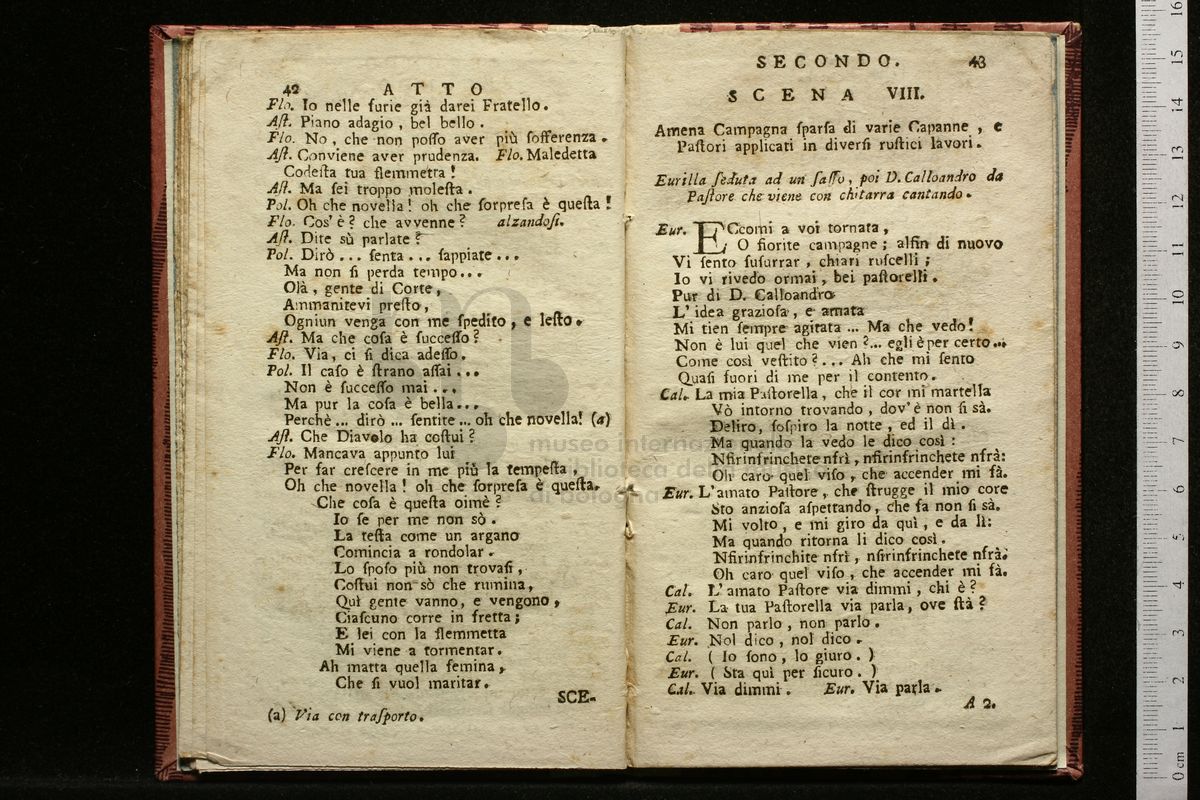 42 A T T O
Flo. Io nelle furie già darei Fratello.
Aſt. Piano adagio, bel bello.
Flo. No, che non poſſo aver più ſofferenza.
Aſt. Conviene aver prudenza. Flo. Maledetta
Codeſta tua flemmetra!
Aſt. Ma ſei troppo moleſta.
Pol. Oh che novella! oh che ſorpreſa è queſta!
Flo. Cos'è? che avvenne? alzandoſi.
Aſt. Dite sù parlate?
Pol. Dirò... ſenta... ſappiate...
Ma non ſi perda tempo...
Olà, gente di Corte,
Ammanitevi preſto,
Ogniun venga con me ſpedito, e leſto.
Aſt. Ma che coſa è ſucceſſo?
Flo. Via, ci ſi dica adeſſo.
Pol. Il caſo è ſtrano aſſai...
Non è ſucceſſo mai...
Ma pur la coſa è bella...
Perchè... dirò... ſentite... oh che novella! (a)
Aſt. Che Diavolo ha coſtui?
Flo. Mancava appunto lui
Per far creſcere in me più la tempeſta,
Oh che novella! oh che ſorpreſa è queſta.
Che coſa è queſta oimè?
Io ſe per me non sò.
La teſta come un argano
Comincia a rondolar.
Lo ſpoſo più non trovaſi,
Coſtui non sò che rumina,
Quì gente vanno, e vengono,
Ciaſcuno corre in fretta;
E lei con la flemmetta
Mi viene a tormentar.
Ah matta quella femina,
Che ſi vuol maritar.
SCE-
(a) Via con traſporto.
SECONDO. 43
S C E N A VIII.
Amena Campagna ſparſa di varie Capanne, e
Paſtori applicati in diverſi ruſtici lavori.
Eurilla ſeduta ad un ſaſſo, poi D. Calloandro da
Paſtore che viene con chitarra cantando.
Eur. ECcomi a voi tornata,
O fiorite campagne; alfin di nuovo
Vi ſento ſuſurrar, chiari ruſcelli;
Io vi rivedo ormai, bei paſtorelli.
Pur di D. Calloandro
L'idea grazioſa, e amata
Mi tien ſempre agitata... Ma che vedo!
Non è lui quel che vien?... egli è per certo...
Come così veſtito?... Ah che mi ſento
Quaſi fuori di me per il contento.
Cal. La mia Paſtorella, che il cor mi martella
Vò intorno trovando, dov'è non ſi sà.
Deliro, ſoſpiro la notte, ed il dì.
Ma quando la vedo le dico così:
Nfirinfrinchete nfrì, nfirinfrinchete nfrà:
Oh caro quel viſo, che accender mi fà.
Eur. L'amato Paſtore, che ſtrugge il mio core
Sto anzioſa aſpettando, che fa non ſi sà.
Mi volto, e mi giro da quì, e da lì:
Ma quando ritorna li dico così.
Nfirinfrinchite nfrì, nfirinfrinchete nfrà:
Oh caro quel viſo, che accender mi fà.
Cal. L'amato Paſtore via dimmi, chi è?
Eur. La tua Paſtorella via parla, ove ſtà?
Cal. Non parlo, non parlo.
Eur. Nol dico, nol dico.
Cal. (Io ſono, lo giuro.)
Eur. (Sta quì per ſicuro.)
Cal. Via dimmi. Eur. Via parla.
A 2.
museo internaz
biblioteca della
di bologna
0 cm 1 2 3 4 5 6 7 8 9 10 11 12 13 14 15 16